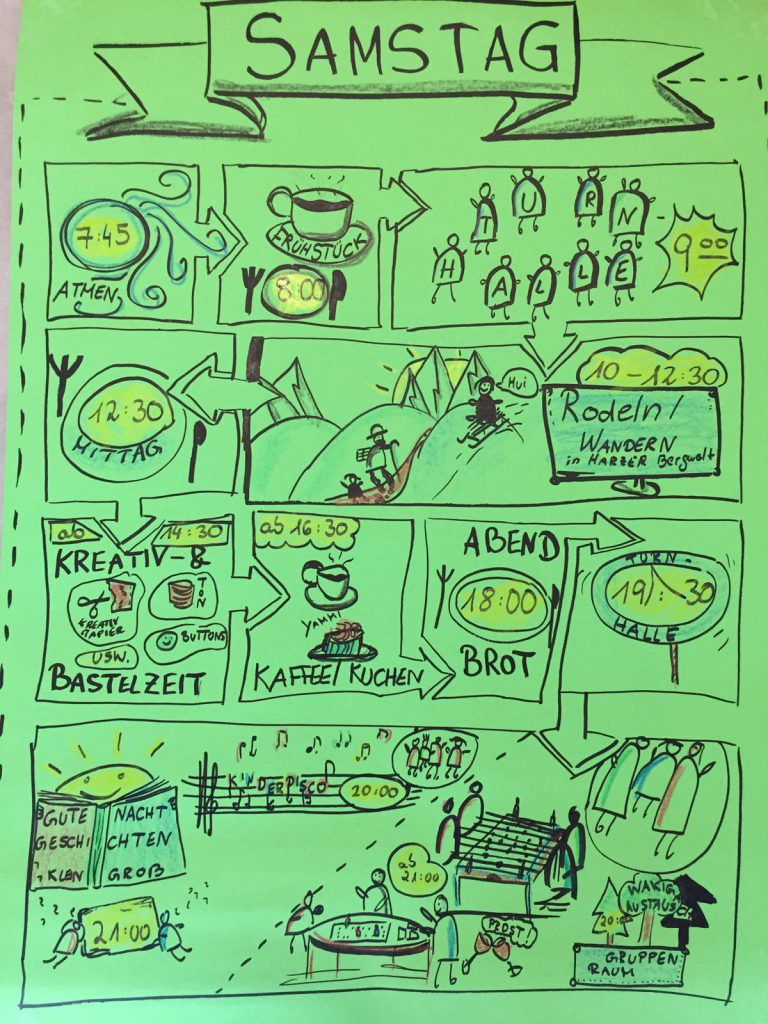 SAMSTAG
7:45
ATMEN
FRÜHSTÜCK
8:00
TURN
HALLE
9 00
10-12:30
Rodeln/
WANDERN
in HARZER Bergwelt
Hui
12:30
MITTAG
ab 14:30
KREATIV-&
KREATIV
PAPIER
TON
BUTTONS
USW.
BASTELZEIT
ab 16:30
YAMMI
KAFFEE/KUCHEN
ABEND
18:00
BROT
TURN-
19:30
HALLE
GUTE NACHT
GESCHI CHTEN
KLEIN GROß
21:00
KINDERDISCO
20:00
ab
21:00
PROST
AUSTAUSCH
GRUPPEN
RAUM